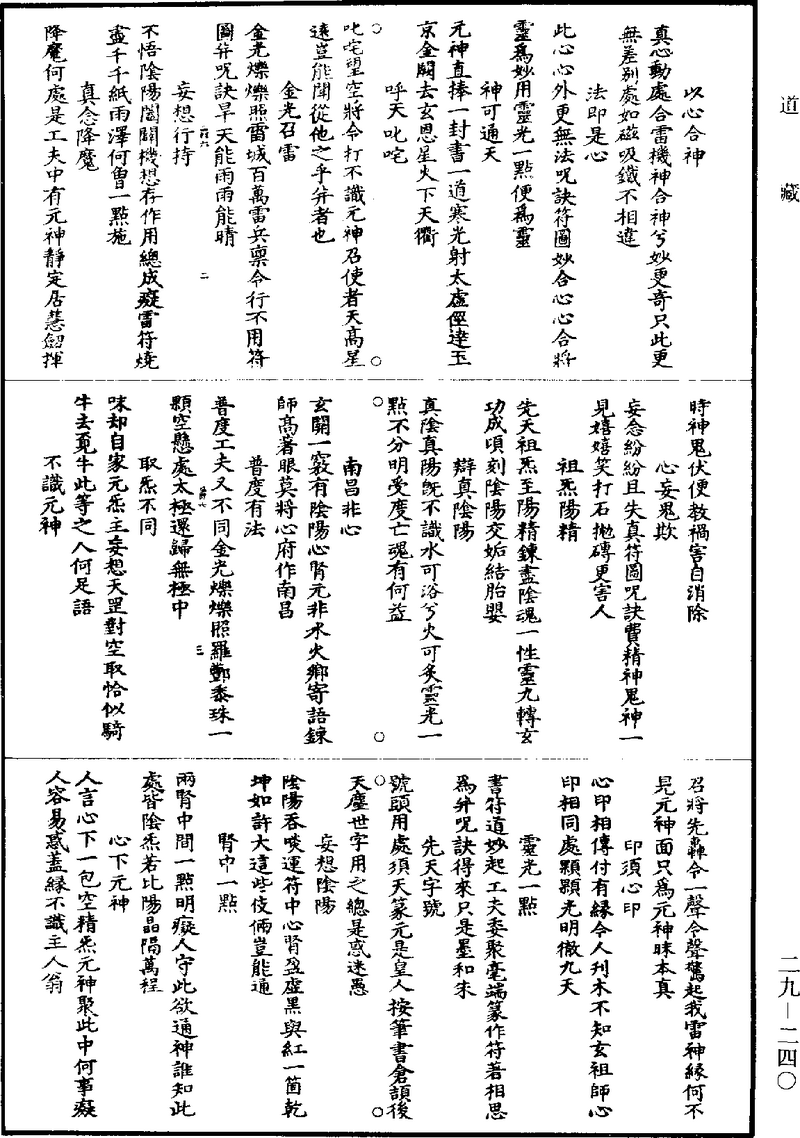 道藏
以心合神
真心動處合雷機神合神兮妙更奇只此更
無差別處如磁吸鐵不相違
法即是心
此心心外更無法呪訣符圖妙合心心合將
靈爲妙用靈光一點便爲靈
神可通天
元神直捧一封書一道寒光射太虛徑達玉
京金闕去玄恩星火下天衢
呼天叱咤
叱咤望空將令打不識元神召使者天高星
遠豈能聞從他之乎并者也
金光召雷
金光爍爍照雷城百萬雷兵禀令行不用符
圖并呪訣旱天能雨雨能晴
妄想行持
不悟陰陽闔闢機想存作用總成癡雷符燒
盡千千紙雨澤何曽一點施
真念降魔
降魔何處是工夫中有元神靜定居慧劒揮
二
時神鬼伏便教禍害自消除
心妄鬼欺
妄念紛紛且失真符圖呪訣費精神鬼神一
見嬉嬉笑打石抛磚更害人
祖炁陽精
先天祖炁至陽精鍊盡陰魂一性靈九轉玄
功成頃刻陰陽交姤結胎嬰
辯真陰陽
真陰真陽旣不識水可浴兮火可炙靈光一
點不分明受度亡魂有何益
南昌非心
玄關一竅有陰陽心腎元非水火鄉寄語鍊
師高著眼莫將心府作南昌
普度有法
普度工夫又不同金光爍爍照羅酆黍珠一
顆空懸處太極還歸無極中
三
取炁不同
昧却自家元炁主妄想天罡對空取恰似騎
牛去覓牛此等之人何足語
不識元神
召將先轟令一聲令聲驚起我雷神緣何不
見元神面只爲元神昧本真
印須心印
心印相傳付有緣令人刋木不知玄祖師心
印相同處顆顆光明徹九天
靈光一點
書符道妙起工夫委聚毫端篆作符著相思
爲并呪訣得來只是墨和朱
先天字號
號頭用處須天篆元是皇人按筆書倉頡後
天塵世字用之總是惑迷愚
妄想陰陽
陰陽呑啖運符中心腎盈虛黑與紅一箇乾
坤如許大這些伎倆豈能通
腎中一點
兩腎中間一點明癡人守此欲通神誰知此
處皆陰炁若比陽晶隔萬程
心下元神
人言心下一包空精炁元神聚此中何事癡
人容易惑蓋緣不識主人翁
二九—二四〇